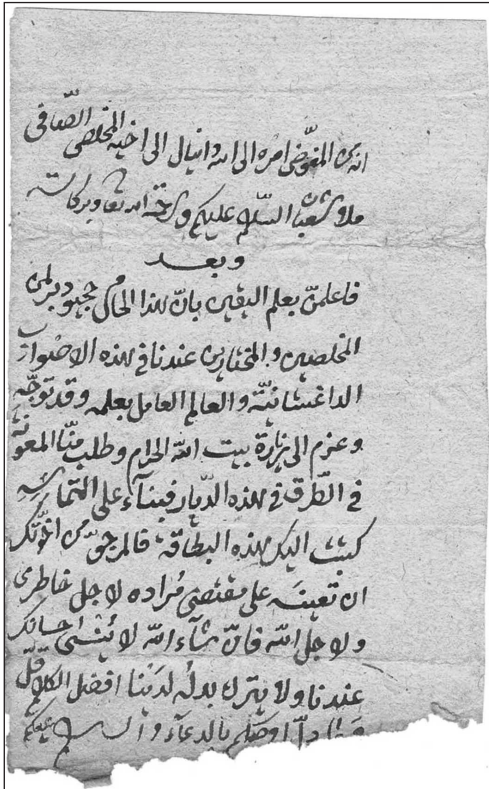 انه من المفوّض امره الى الله دانيال الى اخيه المخلص الصّافي
ملا شعبان السّلام عليكم ورحمة الله تعا وبركاته
وبعد
فاعلمنّ بعلم اليقين بانّ هذا الحاج
المخلصين و المختارين عندنا في هذه الاضواب
الداغستانيّة والعالم العامل بعلمه وقد توجّه
وعزم الى زيارة بيت الله الحرام وطلب منّا المعونة
في الطّرق في هذه الدّيار فبناء على التماسه
كتبت اليكم هذه البطاقة فالمرجوّ من اخوّتكم
ان تعينه على مقتضى مُراده لاجل خاطرى
ولاجل الله فانّ شآء الله لا يُنسٰى احسانكم
عندنا ولا يترك بدله لدَيْنا افضل الكلام قلّ
اوصلكم بالدعآء والسلام عليكم